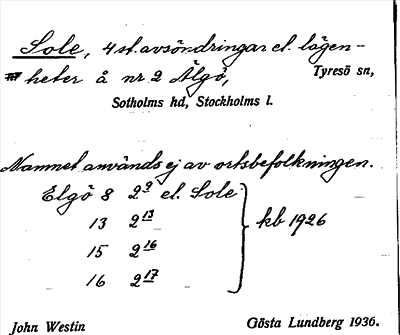 Sole, 4 st. avsöndringar el. lägen-
heter å nr 2 Älgö, Tyresö sn,
Sotholms hd, Stockholms l.
Namnet används ej av ortsbefolkningen.
Elgö 8 2⁹ el. Sole
13 2¹³
15 2¹⁶
16 2¹⁷
kb 1926
John Westin Gösta Lundberg 1936.